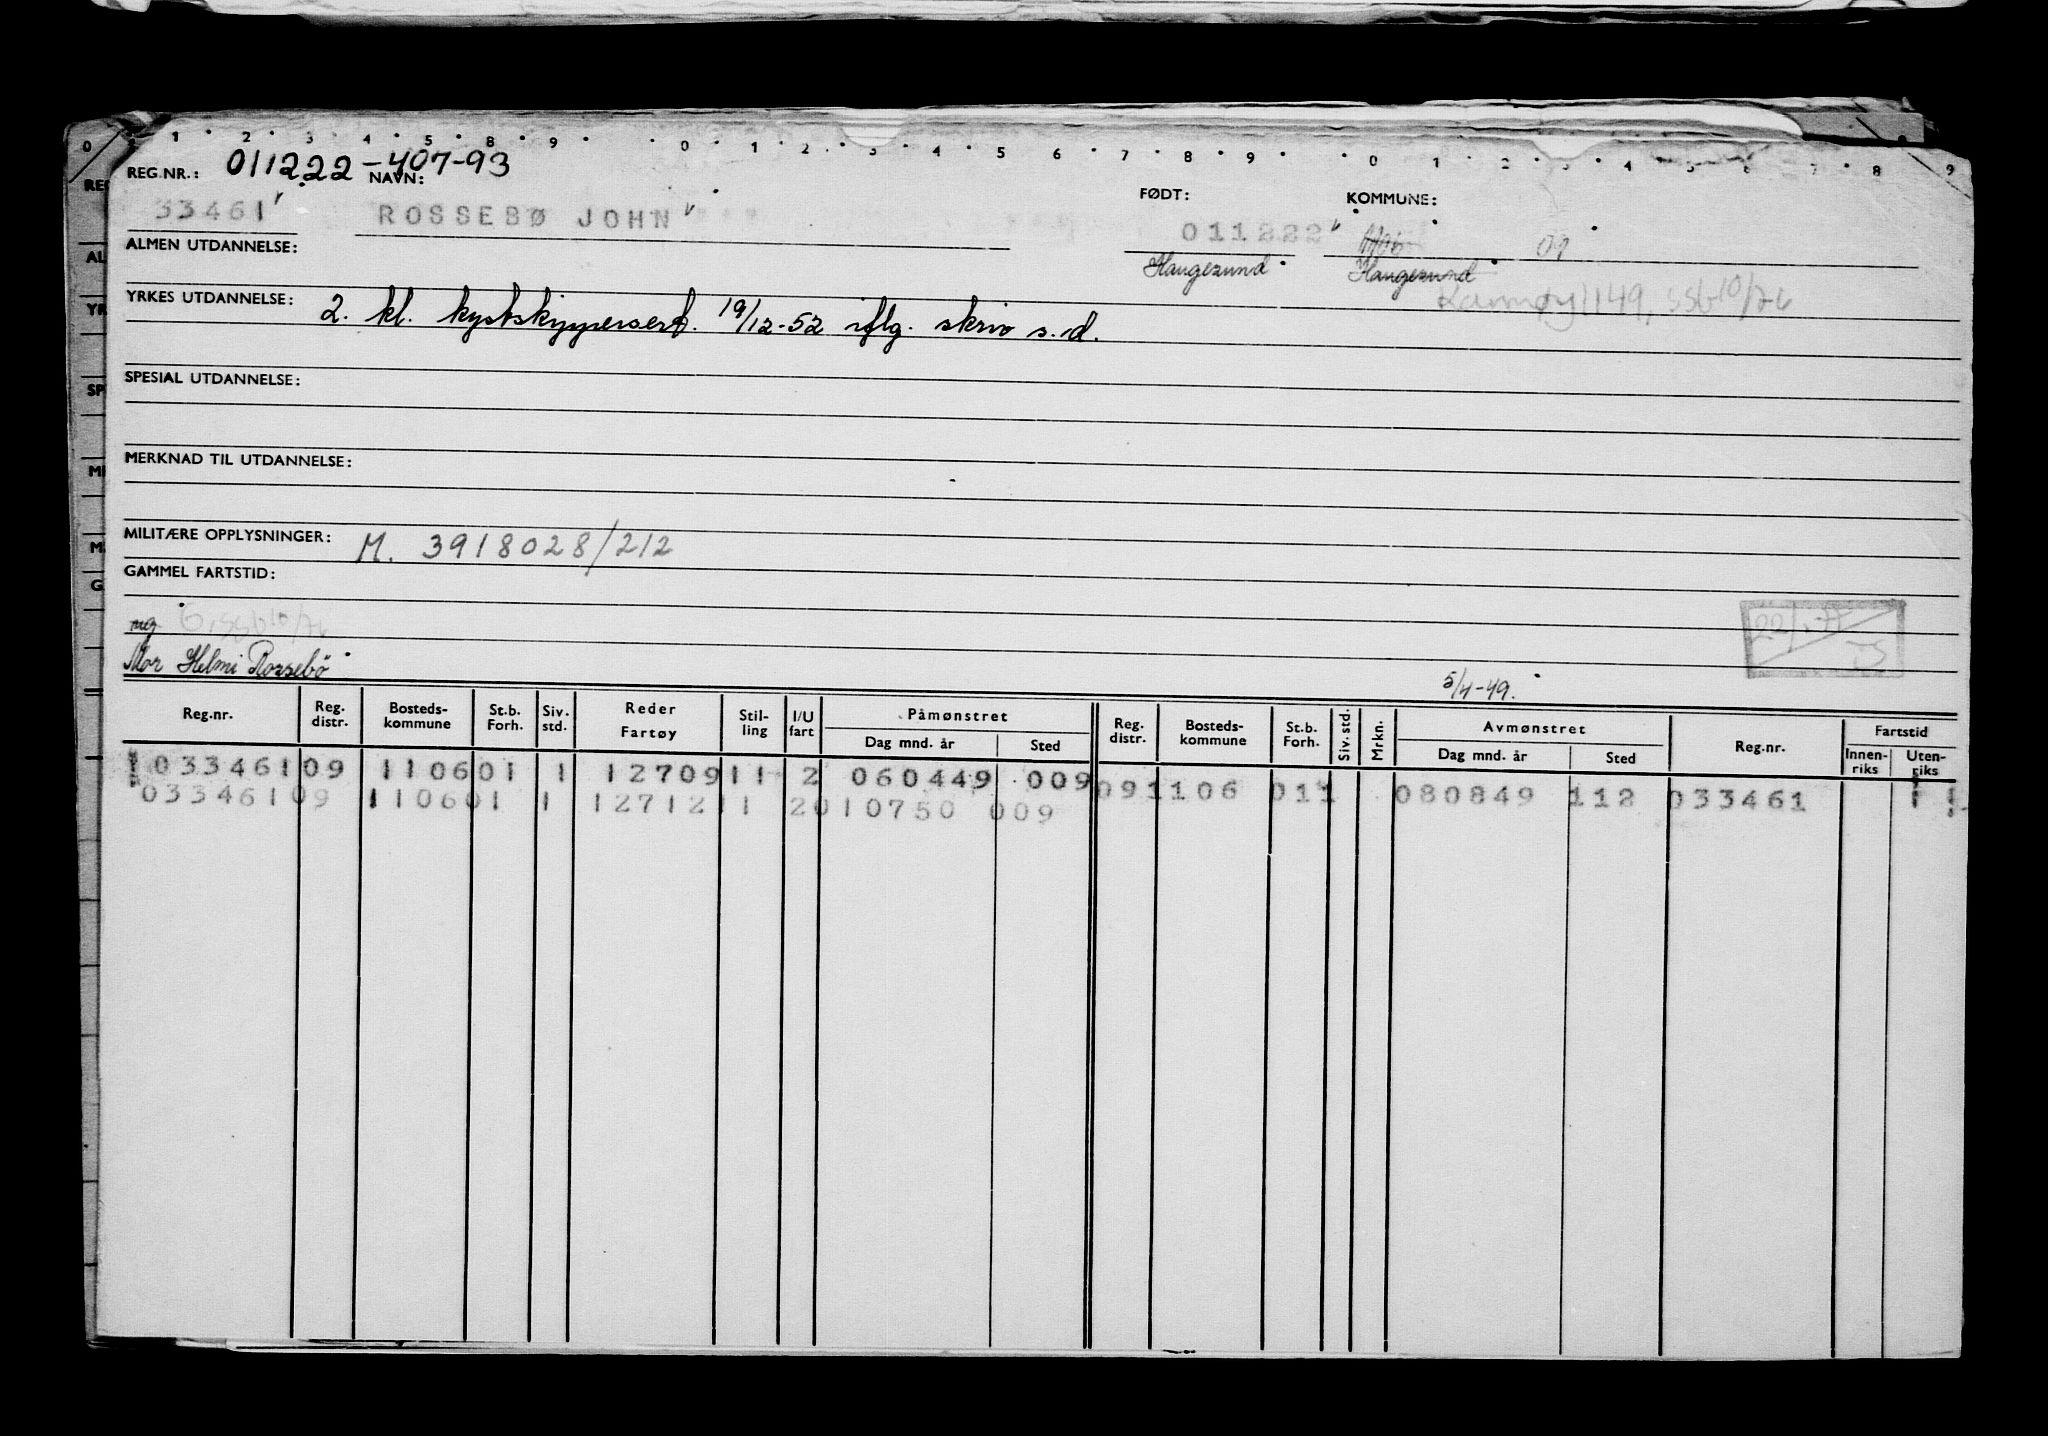 0 1 2 3 4 5 8 9 0 1 2 3 4 5 6 7 8 9 0 1 2 3 4 5 6 7 8 9
REG.NR.: 011222-407-93 NAVN: FØDT: KOMMUNE:
33461 ROSSEBØ JOHN 011222 09
ALMEN UTDANNELSE: Haugesund Haugesund
Karmøy 1149, ssb 10/76
YRKES UTDANNELSE: 2. kl. kystskippersert. 19/12-52 iflg. skriv s.d.
SPESIAL UTDANNELSE:
MERKNAD TIL UTDANNELSE:
MILITÆRE OPPLYSNINGER: M. 3918028/212
GAMMEL FARTSTID:
ug 6, ssb 10/76
Mor Helmi Rossebö
5/4-49.
Reg.nr. Reg. distr. Bosteds-kommune St.b. Forh. Siv. std. Reder Fartøy Stil-ling I/U fart Påmønstret Dag mnd. år Sted Reg. distr. Bosteds-kommune St.b. Forh. Siv. std. Mrkn. Avmønstret Dag mnd. år Sted Reg.nr. Fartstid Innen-riks Uten-riks
033461 09 1106 01 1 12709 11 2 060449 009 09 1106 01 1 080849 112 033461
033461 09 1106 01 1 12712 11 2 010750 009